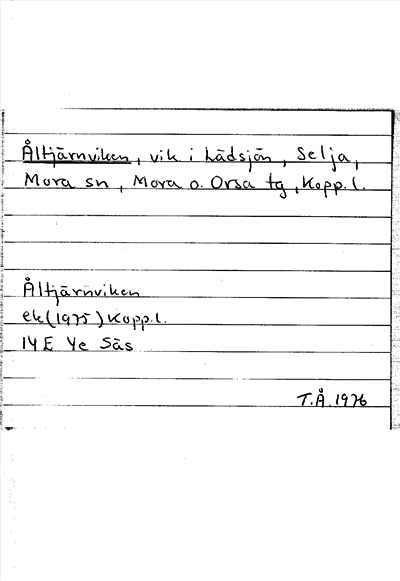 Åltjärnviken, vik i Lädsjön, Selja,
Mora sn, Mora o. Orsa tg, Kopp. l.
Åltjärnviken
ek (1975) Kopp. l.
14 E 4e Säs
T.Å. 1976